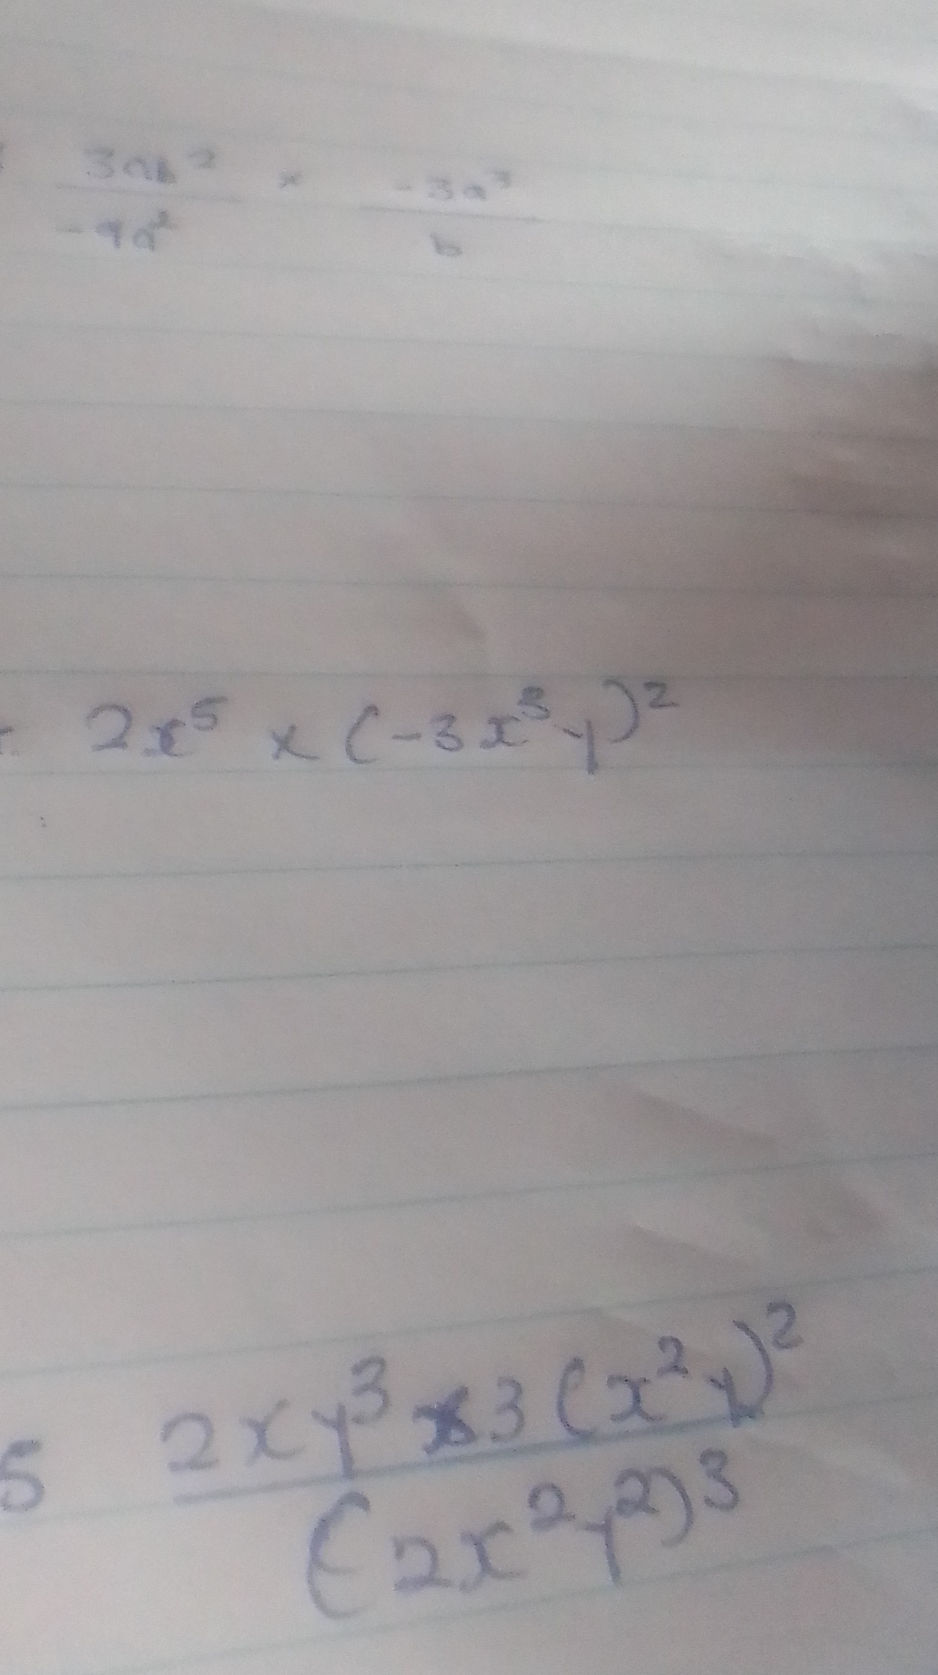 3ab² × -3a³
-9a² b
2x⁵ × (-3x³y)²
5 2xy³ × 3(x²y)²
(2x²y²)³